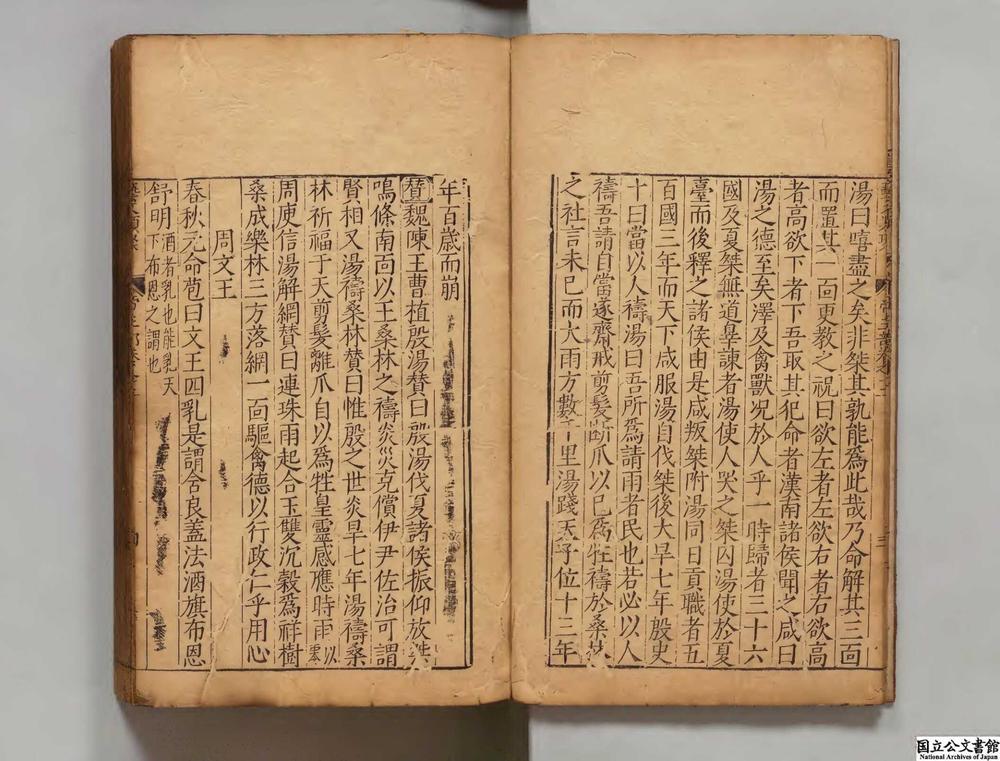 湯曰嘻盡之矣非桀其孰能爲此哉乃命解其三面
而置其一面更教之祝曰欲左者左欲右者右欲高
者高欲下者下吾取其犯命者漢南諸侯聞之咸曰
湯之德至矣澤及禽獸况於人乎一時歸者三十六
國及夏桀無道辠諫者湯使人哭之桀囚湯使於夏
臺而後釋之諸侯由是咸叛桀附湯同日貢職者五
百國三年而天下咸服湯自伐桀後大旱七年殷史
卜曰當以人禱湯曰吾所爲請雨者民也若必以人
禱吾請自當遂齋戒剪髮断爪以己爲牲禱於桑林
之社言未已而大雨方數千里湯踐天子位十三年
年百歲而崩
贊魏陳王曹植殷湯贊曰殷湯伐夏諸侯振仰放桀
鳴條南面以王桑林之禱炎災克償伊尹佐治可謂
賢相又湯禱桑林贊曰惟殷之世炎旱七年湯禱桑
林祈福于天剪髮離爪自以爲牲皇靈感應時雨以零
周庾信湯解網贊曰連珠雨起合玉雙沉穀爲祥樹
桑成樂林三方落網一面驅禽德以行政仁乎用心
周文王
春秋元命苞曰文王四乳是謂含良蓋法酒旗布恩
舒明酒者乳也能乳天下布恩之謂也
国立公文書館
National Archives of Japan